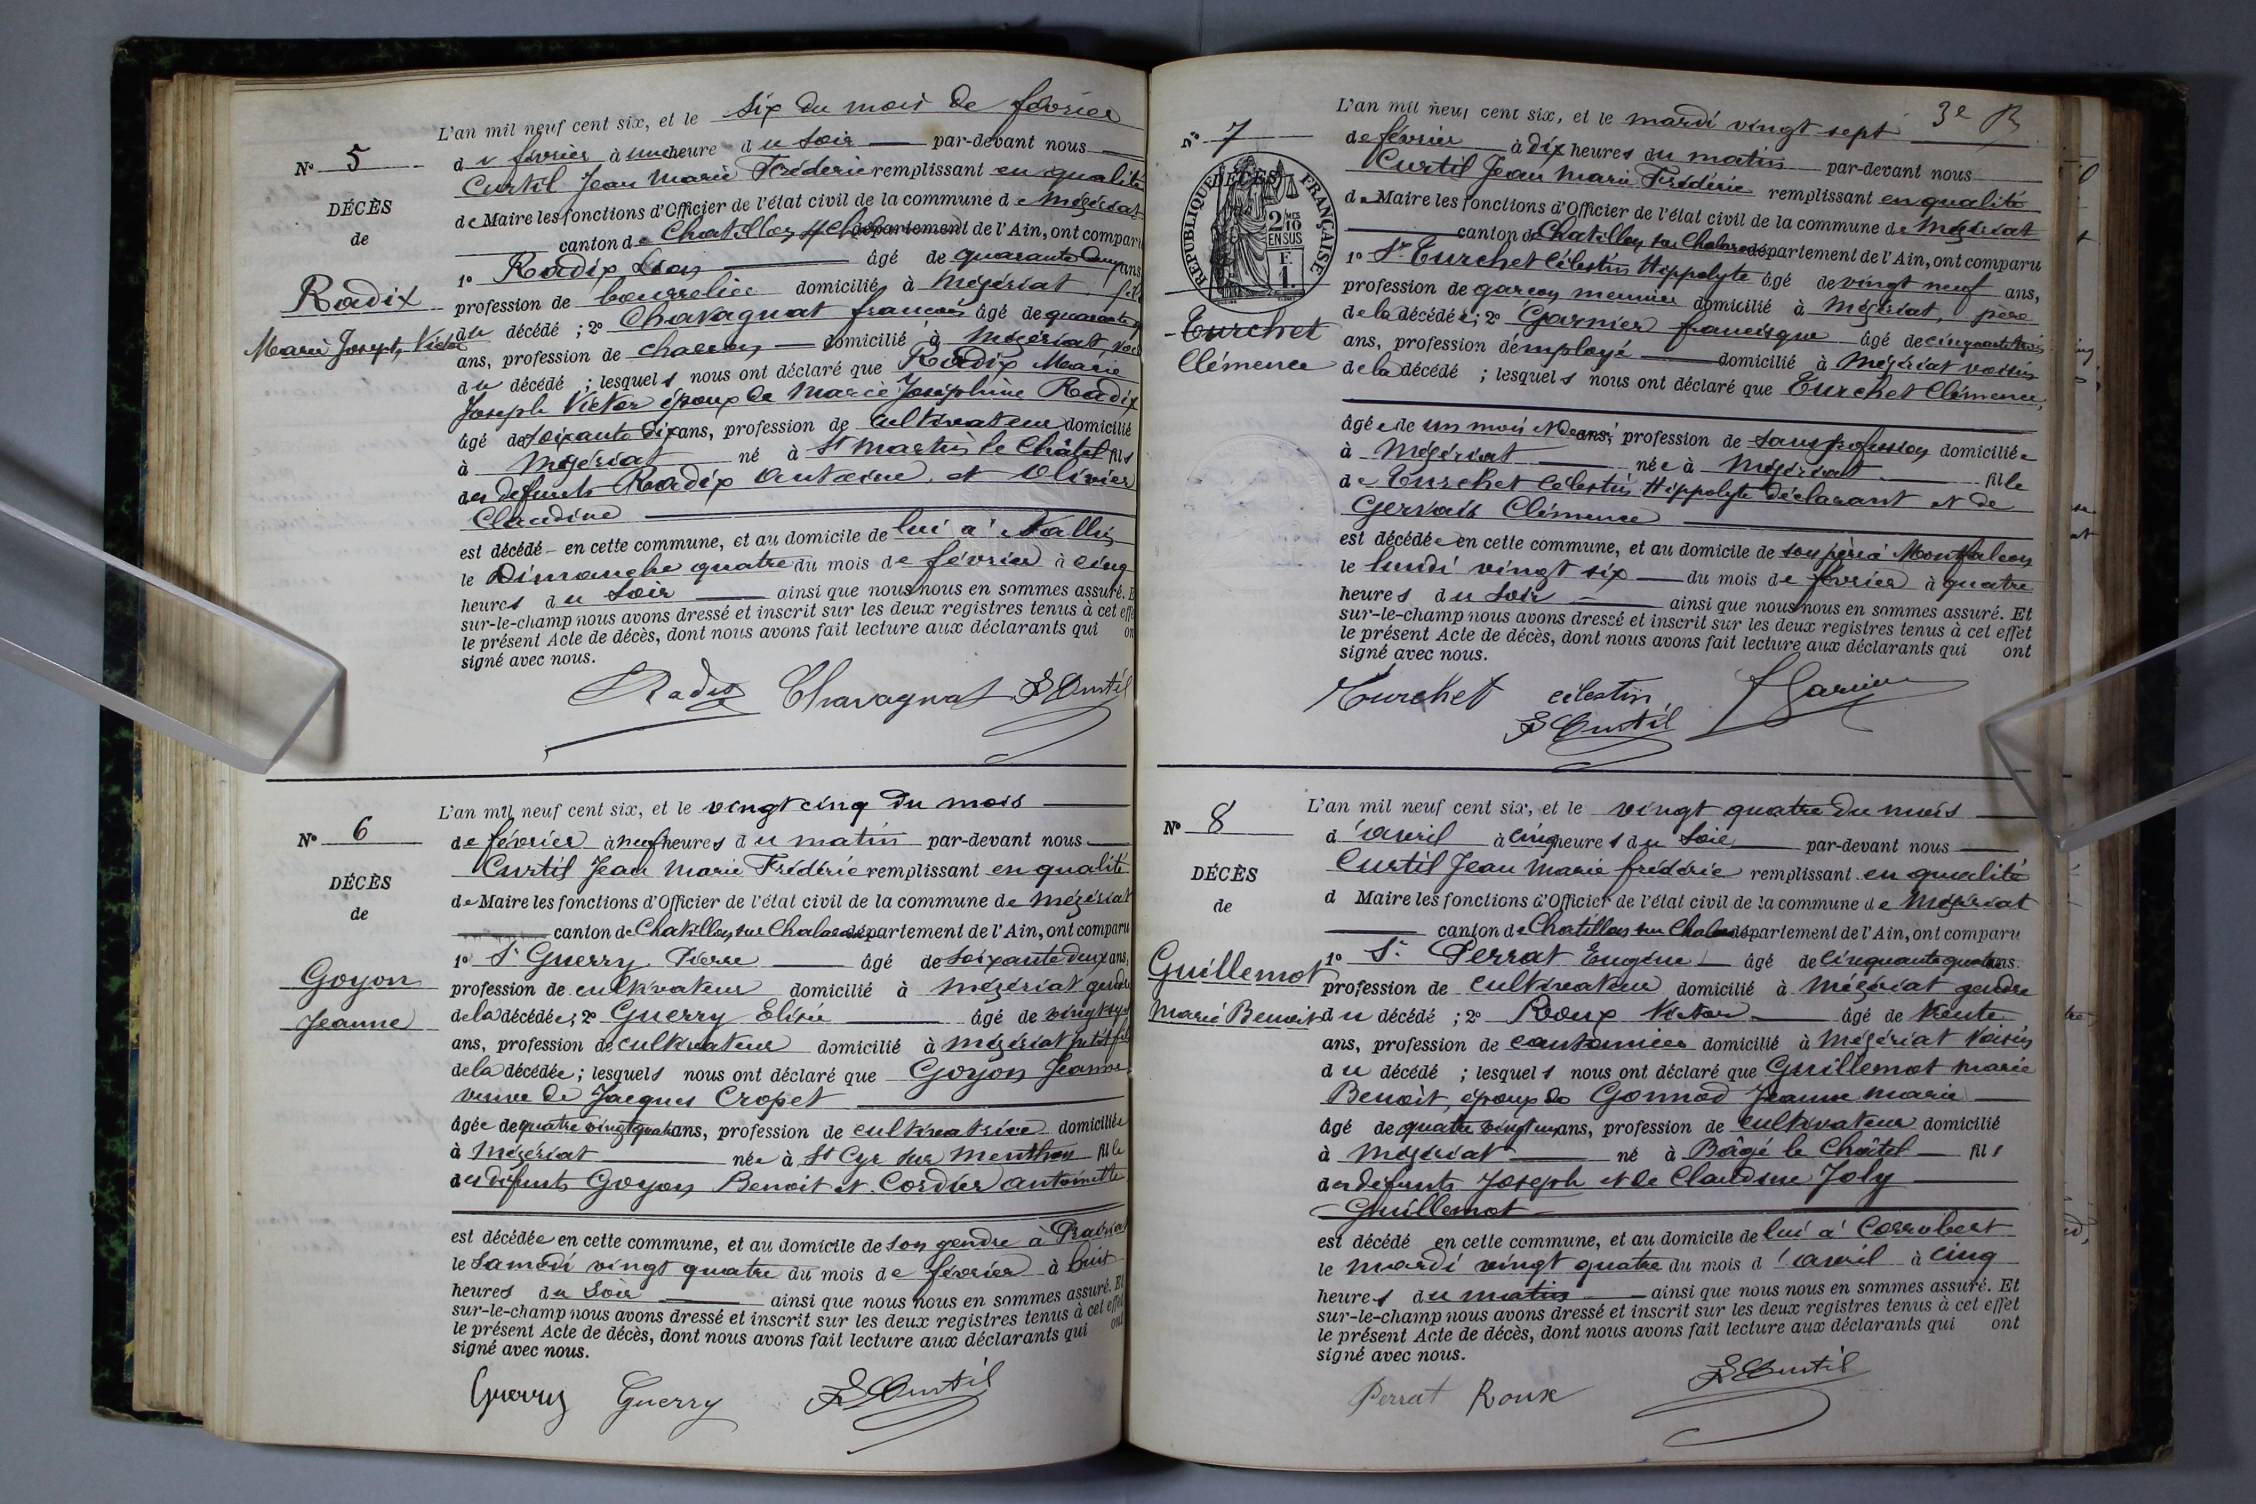 L'an mil neuf cent six, et le six du mois de février
du février à une heure du soir par-devant nous
Nº 5
Curtil Jean Marie Frédéric remplissant en qualité
DÉCÈS
de Maire les fonctions d'Officier de l'état civil de la commune de Mézériat
de
canton de Chatillon s/ Ch département de l'Ain, ont comparu
1º Radix Léon âgé de quarante ans,
Radix
profession de bourrelier domicilié à Mézériat, fils
Marie Joseph, Victor
du décédé ; 2º Chavagnat françois âgé de quarante
ans, profession de charron domicilié à Mézériat, voisin
du décédé ; lesquels nous ont déclaré que Radix Marie
Joseph Victor époux de Marie Joséphine Radix
âgé de soixante dix ans, profession de cultivateur domicilié
à Mézériat né à St Martin le Châtel fils
des défunts Radix Antoine, et Olivier
Claudine
est décédé en cette commune, et au domicile de lui à
le Dimanche quatre du mois de février à cinq
heures du soir ainsi que nous nous en sommes assuré. E
sur-le-champ nous avons dressé et inscrit sur les deux registres tenus à cet effe
le présent Acte de décès, dont nous avons fait lecture aux déclarants qui on
signé avec nous.
Radix Chavagnat F Curtil
L'an mil neuf cent six, et le vingt cinq du mois
Nº 6
de février à neuf heures du matin par-devant nous
Curtil Jean Marie Frédéric remplissant en qualité
DÉCÈS
de Maire les fonctions d'Officier de l'état civil de la commune de Mézériat
de
canton de Chatillon sur Chalaronne département de l'Ain, ont comparu
1º Sr Guerry Pierre âgé de soixante deux ans,
Goyon
profession de cultivateur domicilié à Mézériat gendre
Jeanne
de la décédée ; 2º Guerry Elisée âgé de vingt
ans, profession de cultivateur domicilié à Mézériat petit fils
de la décédée ; lesquels nous ont déclaré que Goyon Jeanne
veuve de Jacques Cropet
âgée de quatre vingt quatre ans, profession de cultivatrice domiciliée
à Mézériat née à St Cyr sur Menthon fille
des défunts Goyon Benoit et Cordier Antoinette
est décédée en cette commune, et au domicile de son gendre à
le Samedi vingt quatre du mois de février à huit
heures du soir ainsi que nous nous en sommes assuré. Et
sur-le-champ nous avons dressé et inscrit sur les deux registres tenus à cet effet
le présent Acte de décès, dont nous avons fait lecture aux déclarants qui ont
signé avec nous.
Guerry Guerry F Curtil
3e
L'an mil neuf cent six, et le mardi vingt sept
Nº 7
de février à dix heures du matin par-devant nous
Curtil Jean Marie Frédéric remplissant en qualité
RÉPUBLIQUE FRANÇAISE
DÉCÈS
2/10 MES EN SUS
F. 1.
de Maire les fonctions d'Officier de l'état civil de la commune de Mézériat
canton de Chatillon sur Chalaronne département de l'Ain, ont comparu
1º Sr Turchet Célestin Hippolyte âgé de vingt neuf ans,
profession de garçon meunier domicilié à Mézériat, père
Turchet
de la décédée ; 2º Garnier francisque âgé de cinquante trois
ans, profession d'employé domicilié à Mézériat voisin
Clémence
de la décédé ; lesquels nous ont déclaré que Turchet Clémence,
âgée de un mois ans, profession de sans profession domiciliée
à Mézériat née à Mézériat fille
de Turchet Célestin Hippolyte déclarant et de
Gervais Clémence
est décédée en cette commune, et au domicile de son père à Montfalcon
le lundi vingt six du mois de février à quatre
heures du soir ainsi que nous nous en sommes assuré. Et
sur-le-champ nous avons dressé et inscrit sur les deux registres tenus à cet effet
le présent Acte de décès, dont nous avons fait lecture aux déclarants qui ont
signé avec nous.
Turchet célestin F Garnier
F Curtil
L'an mil neuf cent six, et le vingt quatre du mois
Nº 8
d'avril à cinq heures du soir par-devant nous
Curtil Jean Marie frédéric remplissant en qualité
DÉCÈS
d Maire les fonctions d'Officier de l'état civil de la commune de Mézériat
de
canton de Chatillon sur Chalaronne département de l'Ain, ont comparu
1º Sr Perrat Eugène âgé de cinquante quatre ans.
Guillemot
profession de cultivateur domicilié à Mézériat gendre
Marie Benoit
du décédé ; 2º Roux Victor âgé de trente
ans, profession de cantonnier domicilié à Mézériat voisin
du décédé ; lesquels nous ont déclaré que Guillemot Marie
Benoit, époux de Gonnod Jeanne Marie
âgé de quatre vingt un ans, profession de cultivateur domicilié
à Mézériat né à Bâgé le Châtel fils
des défunts Joseph et de Claudine Joly
Guillemot
est décédé en cette commune, et au domicile de lui à Corrobert
le mardi vingt quatre du mois d'avril à cinq
heures du matin ainsi que nous nous en sommes assuré. Et
sur-le-champ nous avons dressé et inscrit sur les deux registres tenus à cet effet
le présent Acte de décès, dont nous avons fait lecture aux déclarants qui ont
signé avec nous.
Perrat Roux F Curtil